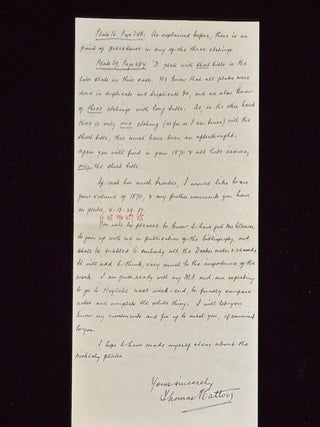 Plate 16. Page 248. As explained before, there is no
point of precedence in any of the three etchings.
Plate 29. Page 454. "D" plate with short title is the
later state in this case. We know that all plates were
done in duplicate and triplicate &c, and we also know
of three etchings with long title. As, on the other hand
there is only one etching (so far as I can trace) with the
short title, this must have been an afterthought.
Again you will find in your 1870 & all late issues,
only the short title.
If not too much trouble, I would like to see
your volume of 1870, & any further comments you have
on plates, 4. 12. 29. 37.
You will be pleased to know I have got Mr Cleaver
to join up with me in publication of the bibliography, and
shall be enabled to embody all the Doctor's notes & remarks.
It will add I think, very much to the importance of the
work. I am quite ready with my M.S. and am expecting
to go to Hoylake next week-end, to finally compare
notes and complete the whole thing. I will let you
know my movements and fix up to meet you, if convenient
to you.
I hope I have made myself clear about the
Nickleby plates.
Yours sincerely
Thomas Hatton